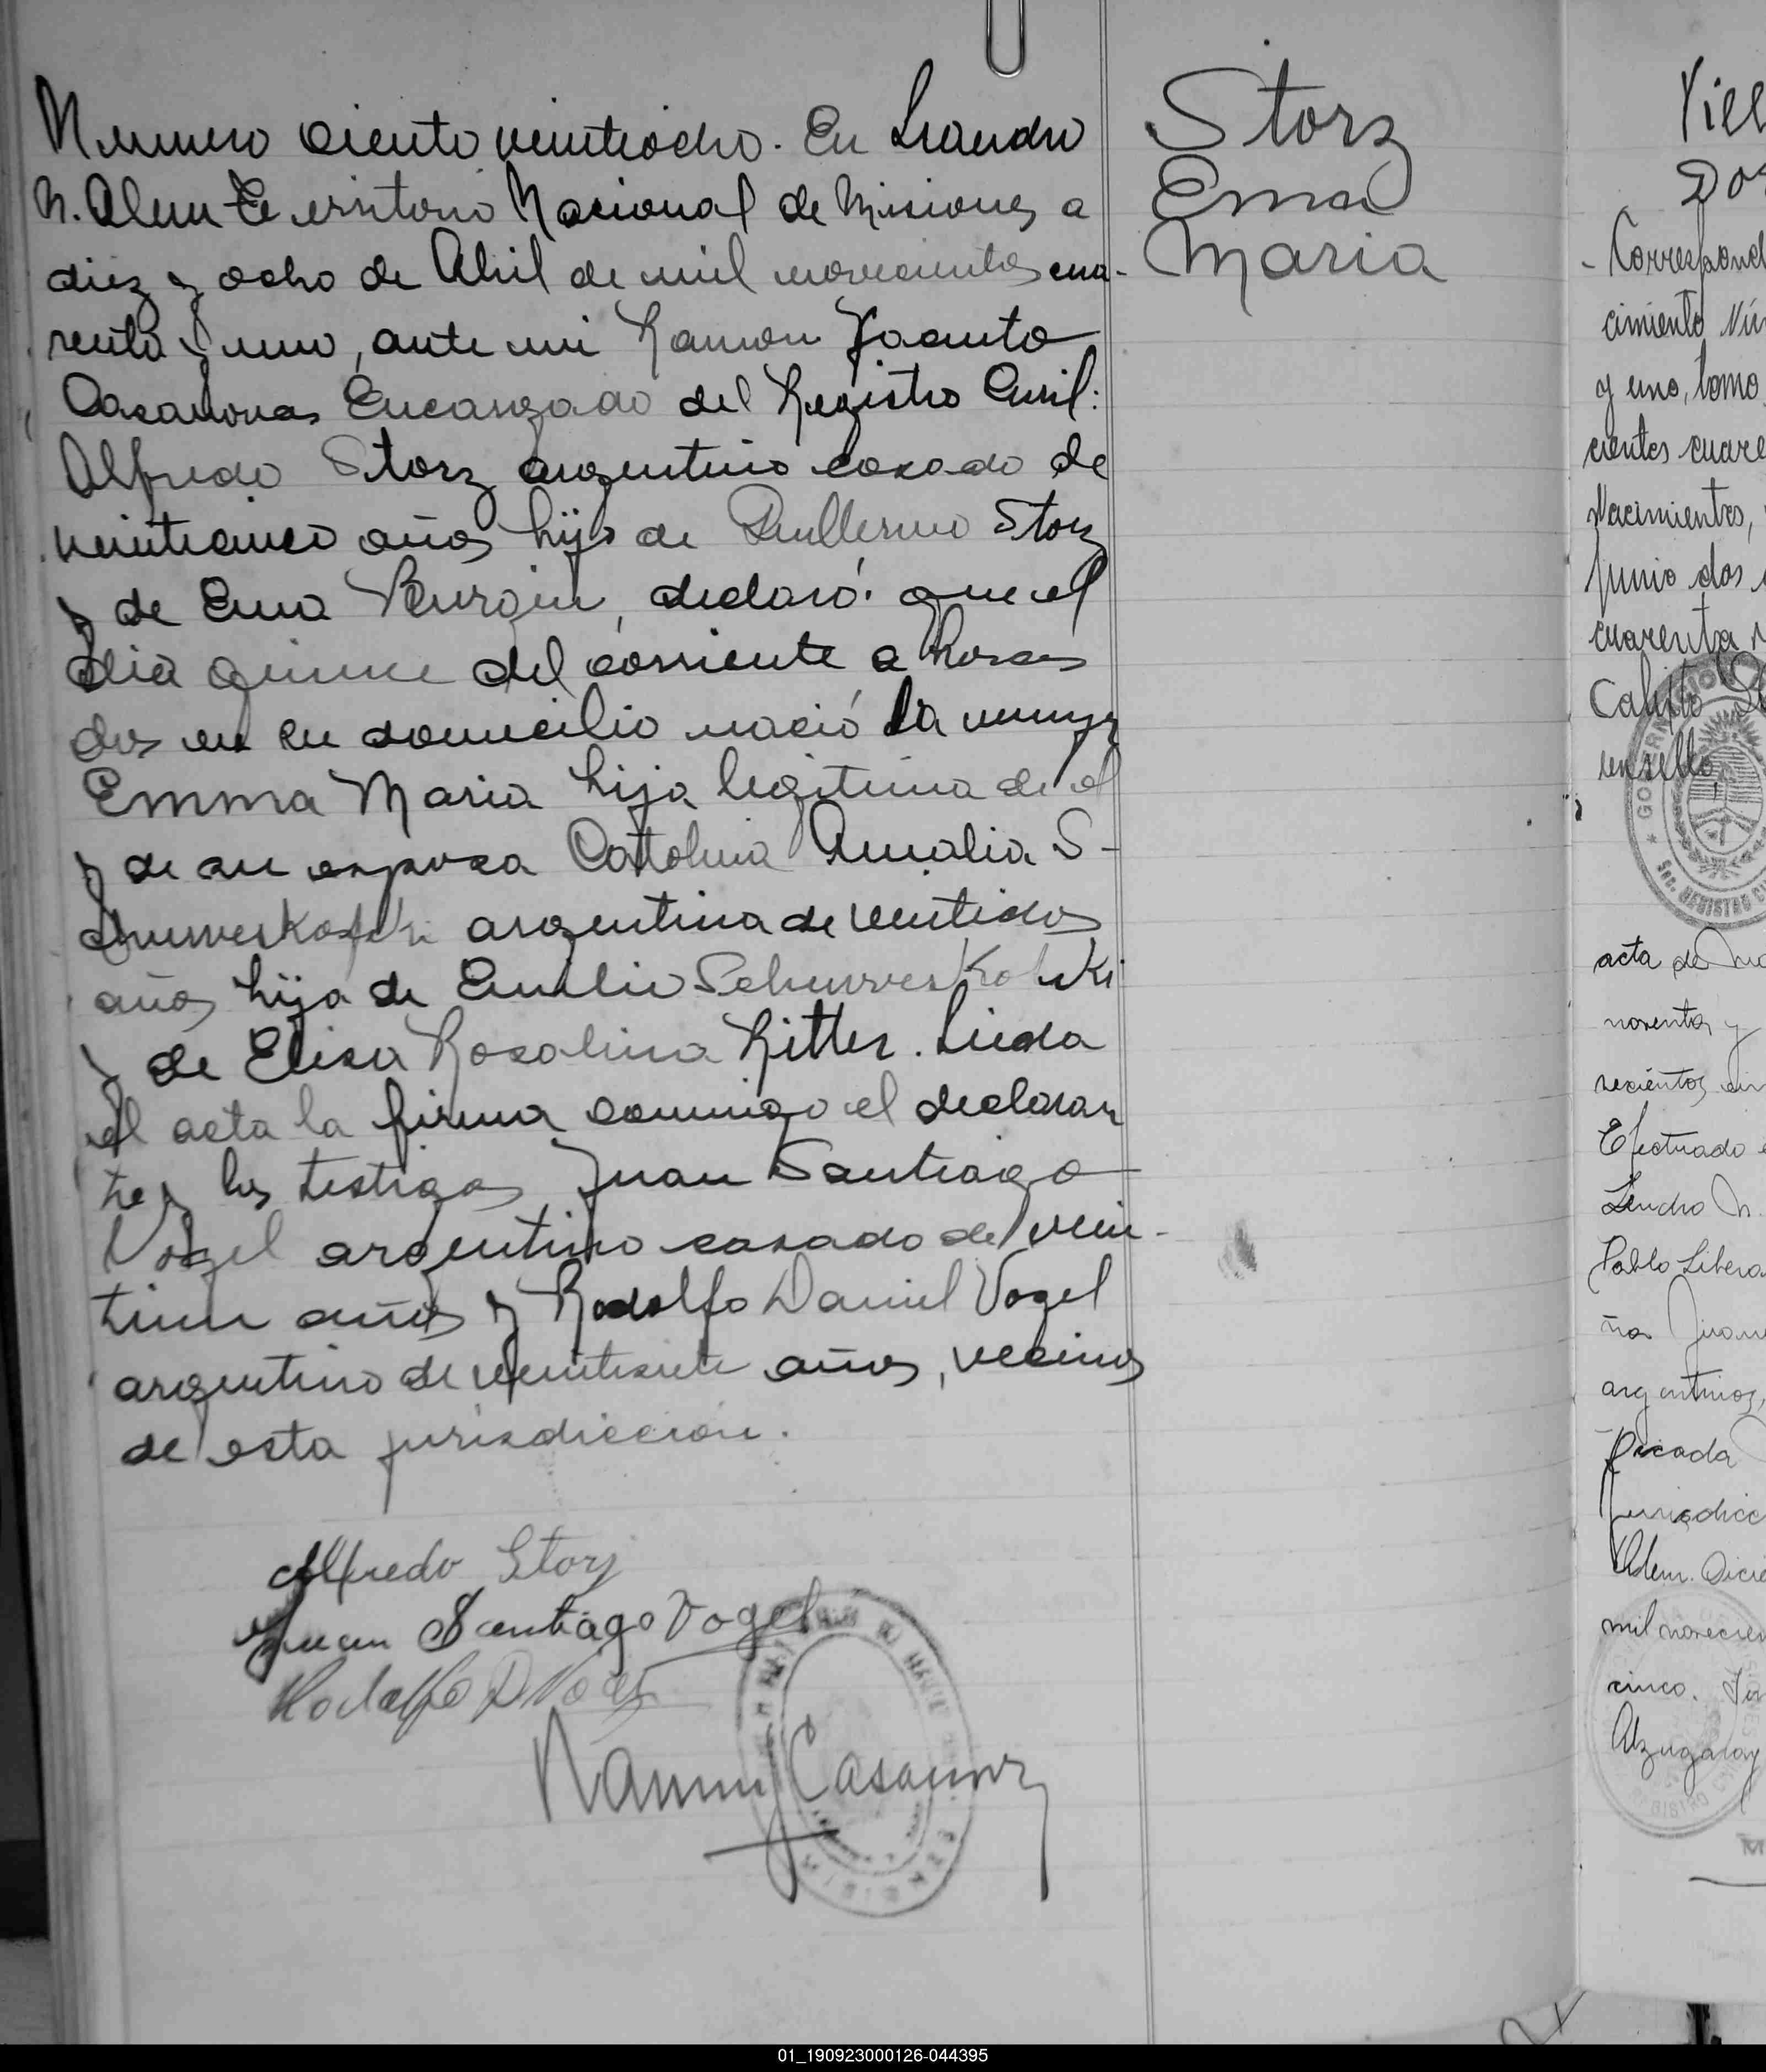 Numero ciento veintiocho. En Leandro
N. Alem Territorio Nacional de Misiones a
diez y ocho de Abril de mil novecientos cua-
renta y uno, ante mi Ramon Jacinto
Casanovas Encargado del Registro Civil:
Alfredo Storz argentino casado de
veinticinco años hijo de Guillermo Storz
y de Ema declaró: que el
dia quince del corriente a horas
dos en su domicilio nació la
Emma Maria hija legitima de el
y de su esposa Catolina Amalia S-
argentina de ventidos
años hija de Emilio
y de Elisa Rosalina Ritter. Leida
el acta la firma conmigo el declaran
te y los testigos Juan Santiago
Vogel argentino casado de vein-
tiun años y Rodolfo Daniel Vogel
argentino de veintisiete años, vecinos
de esta jurisdiccion.
Alfredo Storz
Juan Santiago Vogel
Rodolfo D Vogel
Ramon J Casanovas
Storz
Ema
Maria
Correspond
cimiento
y uno, tomo
cientos cuare
Nacimientos,
Junio dos
cuarenta
Calixto
en sello
acta de
noventa y
Efectuado
Leandro N.
Pablo
argentinos,
Picada
jurisdicc
Alem. Dicie
mil novecien
cinco.
Alzugaray
01_190923000126-044395